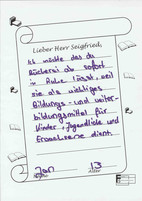 Lieber Herr Seigfried,
Ich möchte das du
Bücherei ab sofort
in Ruhe lässt weil
sie als wichtiges
Bildungs- und weiter-
bildungsmittel für
Kinder, Jugendliche und
Erwachsene dient.
Jan 13
Alter